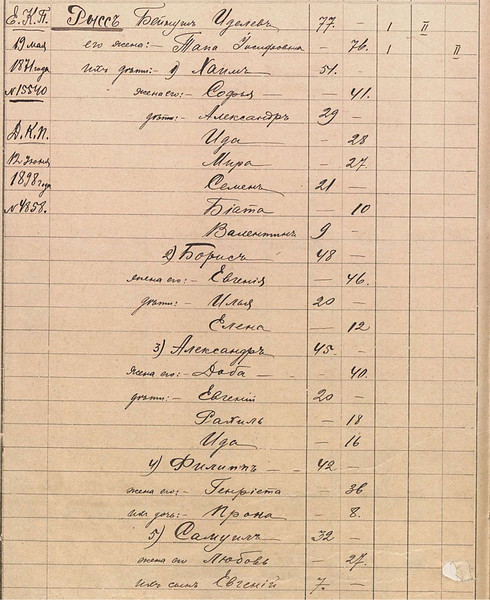 Е.К.П. Рыссъ Беймушъ Иделевъ 77. — 1 II
19 мая его жена:— Тапа Іосифовна — 76. 1 II
1871 года ихъ дѣти:— 1) Хаимъ 51. —
№ 15540 жена его:— Софья — 41.
дѣти:— Александръ 29 —
Д.К.П. Ида — 28
12 Іюня Мира — 27.
1898 год Семенъ 21 —
№ 4858. Біата — 10
Валентинъ 9 —
2) Борисъ 48 —
жена его:— Евгенія — 46.
дѣти:— Илья 20 —
Елена — 12
3) Александръ 45. —
жена его:— Доба — — 40.
дѣти:— Евгеній 20 —
Рахиль — 18
Ида — 16
4) Филиппъ 42 —
жена его:— Генріета — 36
ихъ дочь:— Ирона — 8.
5) Самуилъ 32 —
жена его Любовь — 27.
ихъ сынъ Евгеній 7. —